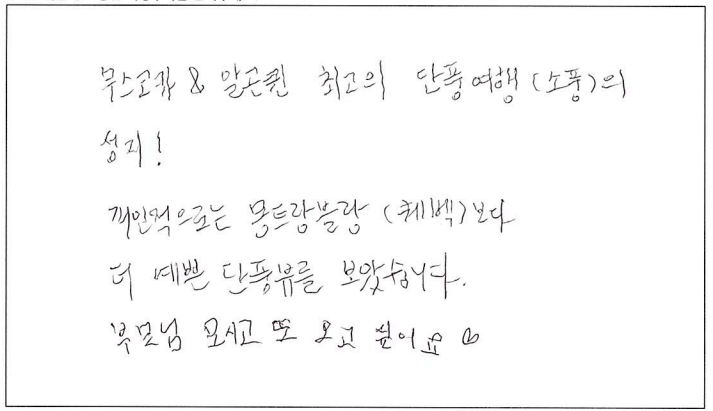 무스코카 & 알곤퀸 최고의 단풍여행 (소풍)의
성지!
개인적으로는 몽트랑블랑 (퀘벡)보다
더 예쁜 단풍뷰를 보았습니다.
부모님 모시고 또 오고 싶어요